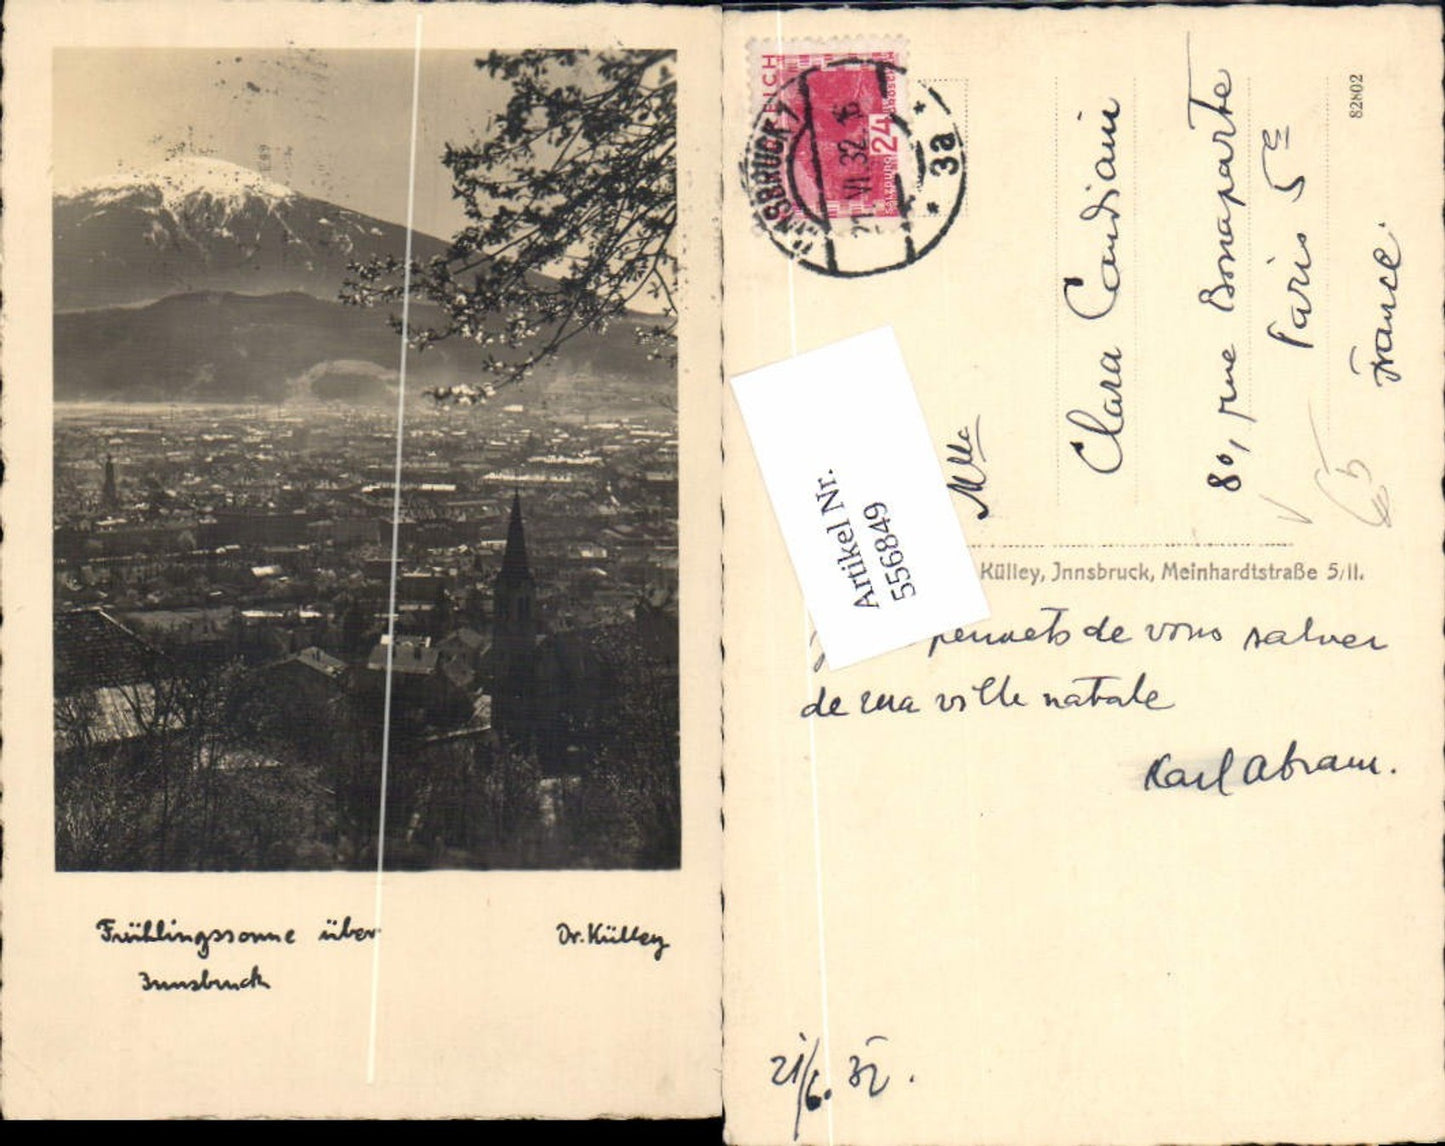 Frühlingssonne über
Innsbruck
Dr. Külley
INNSBRUCK 1
21.VI.32.16
* 3a *
24
82802
Mlle
Clara Candiani
80, rue Bonaparte
Paris 5e
France.
Artikel Nr.
556849
Külley, Innsbruck, Meinhardtstraße 5/II.
permets de vous saluer
de ma ville natale
Karl Abram.
21/6. 32.